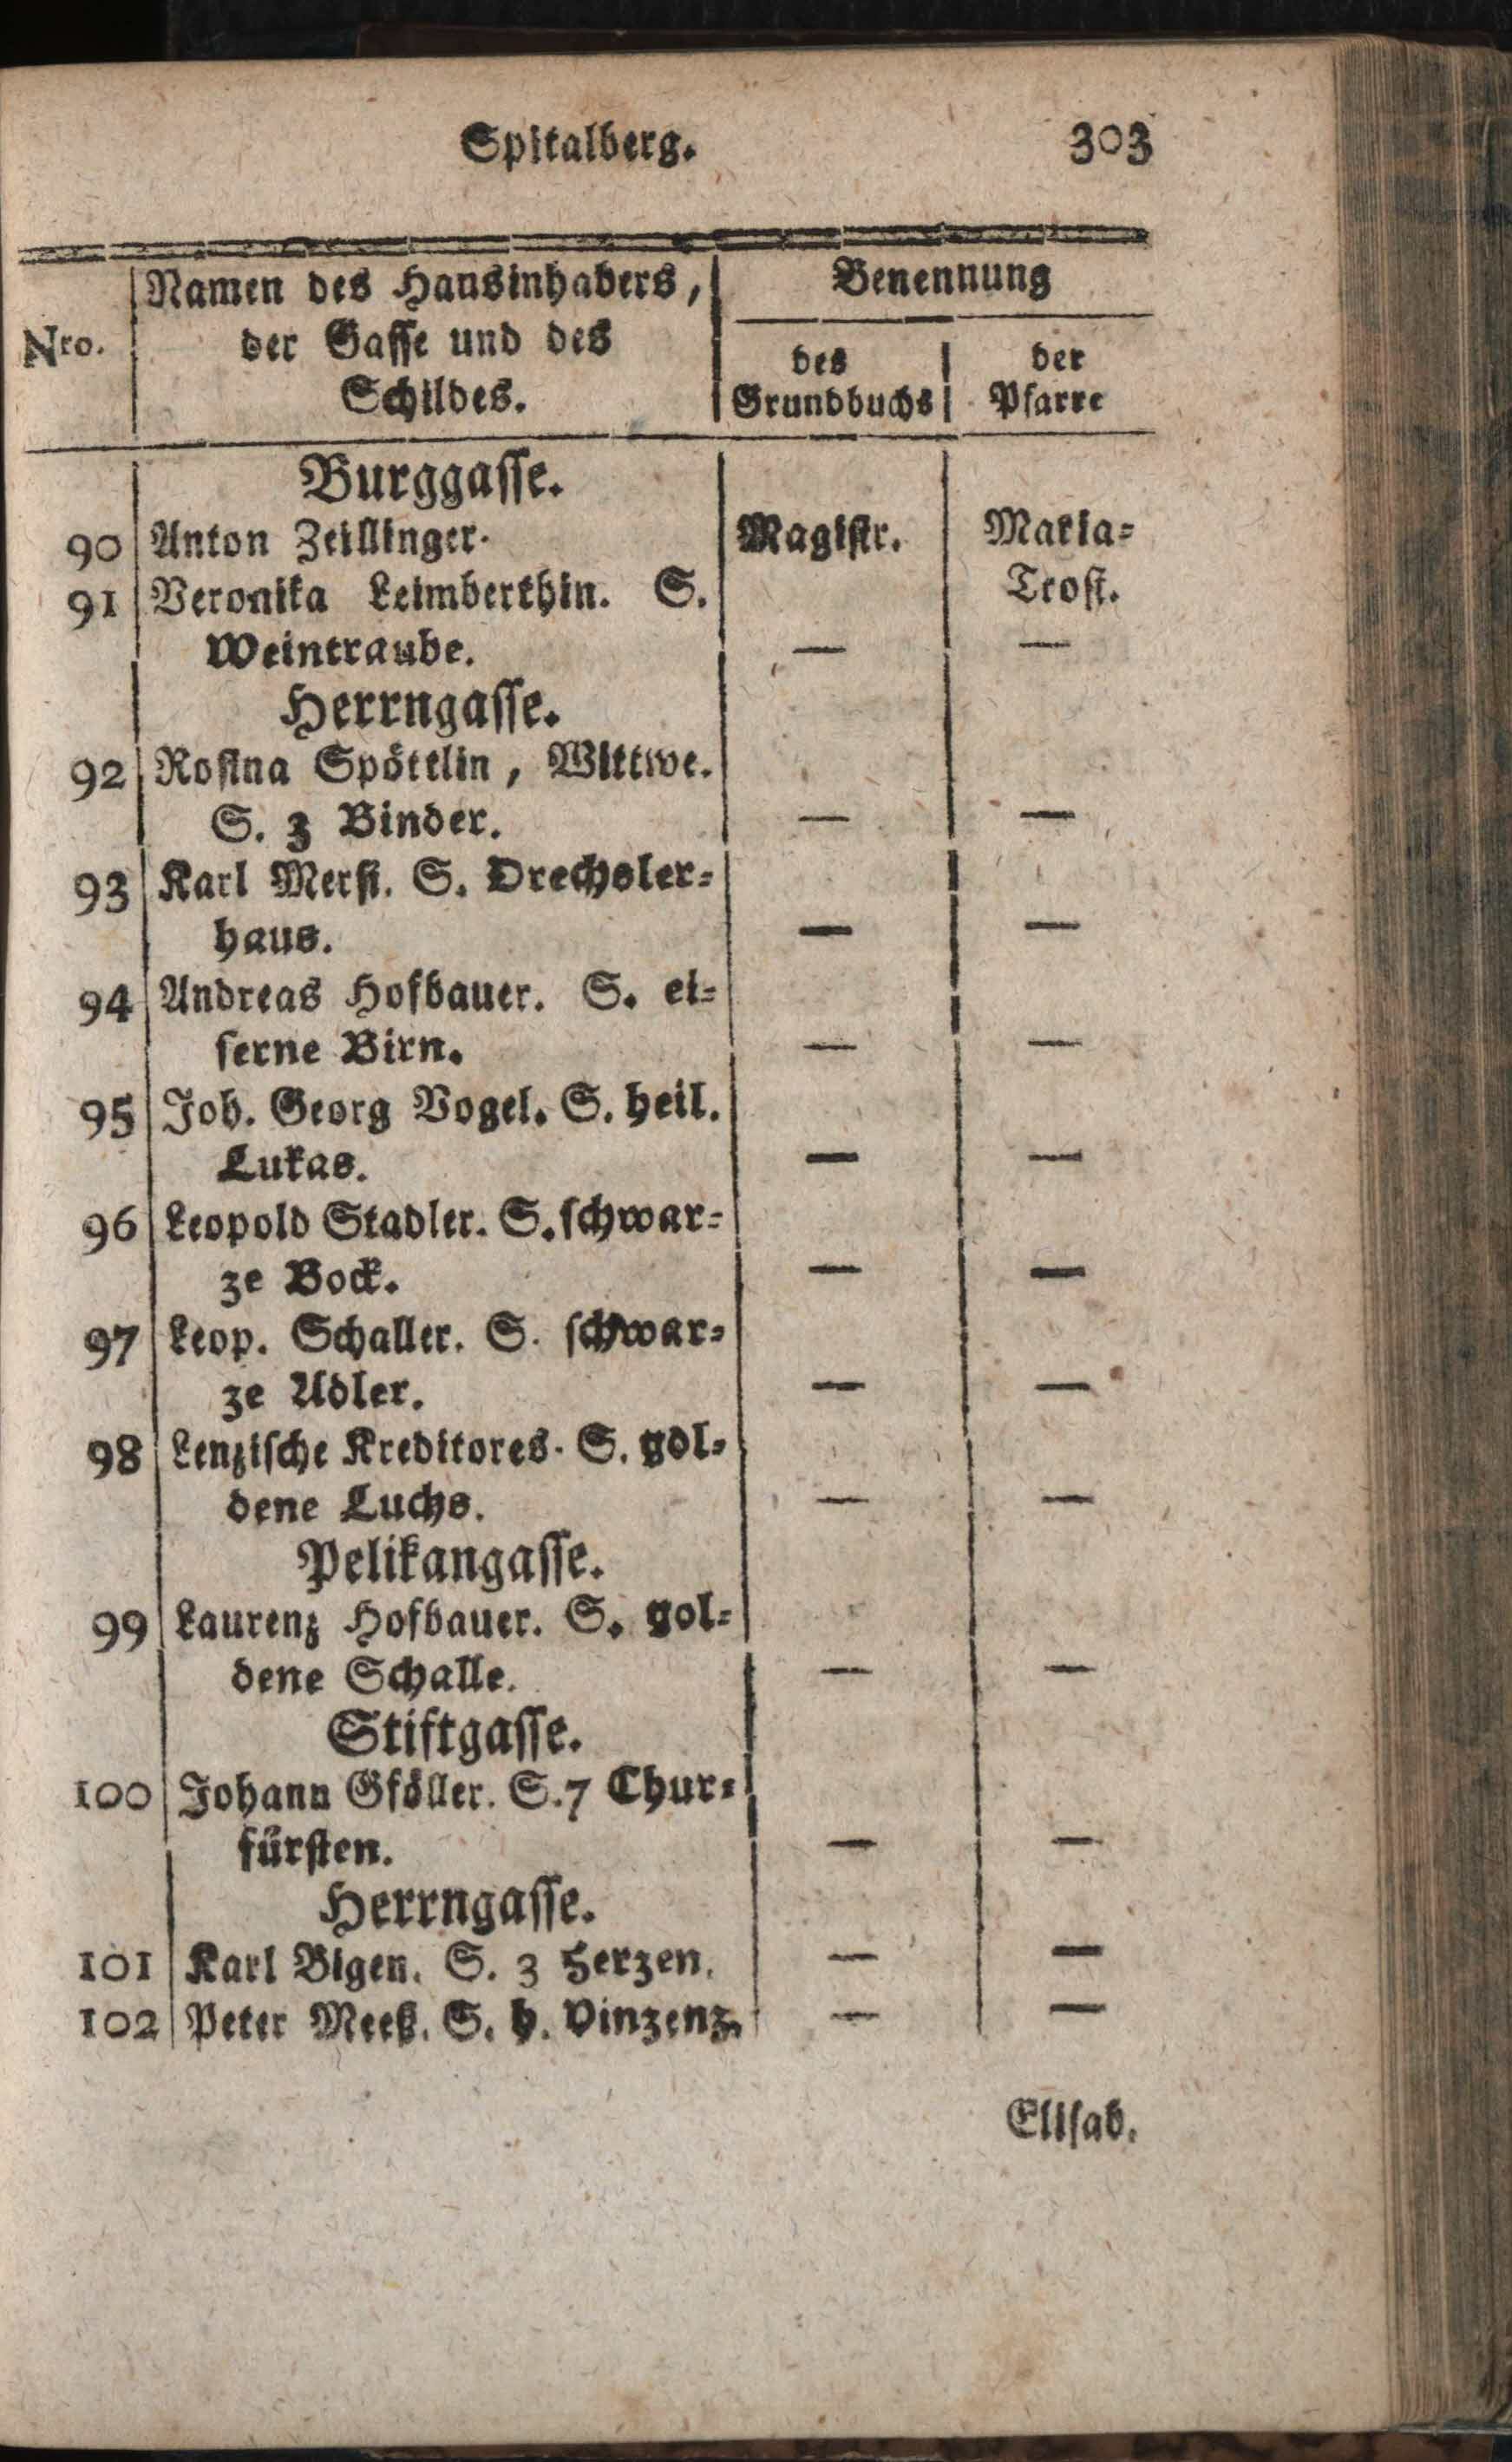 Spitalberg. 303
Nro. Namen des Hausinhabers, der Gasse und des Schildes. Benennung
des Grundbuchs der Pfarre
Burggasse.
90 Anton Zeillinger. Magistr. Maria=
91 Veronika Leimberthin. S. Trost.
Weintraube. — —
Herrngasse.
92 Rosina Spöttlin, Wittwe.
S. 3 Binder. — —
93 Karl Merst. S. Drechsler=
haus. — —
94 Andreas Hofbauer. S. ei=
serne Birn. — —
95 Joh. Georg Vogel. S. heil.
Lukas. — —
96 Leopold Stadler. S. schwar=
ze Bock. — —
97 Leop. Schaller. S. schwar=
ze Adler. — —
98 Lenzische Kreditores. S. gol=
dene Luchs. — —
Pelikangasse.
99 Laurenz Hofbauer. S. gol=
dene Schalle. — —
Stiftgasse.
100 Johann Gföller. S. 7 Chur=
fürsten. — —
Herrngasse.
101 Karl Bigen. S. 3 Herzen. — —
102 Peter Meeß. S. h. Vinzenz. — —
Elisab.